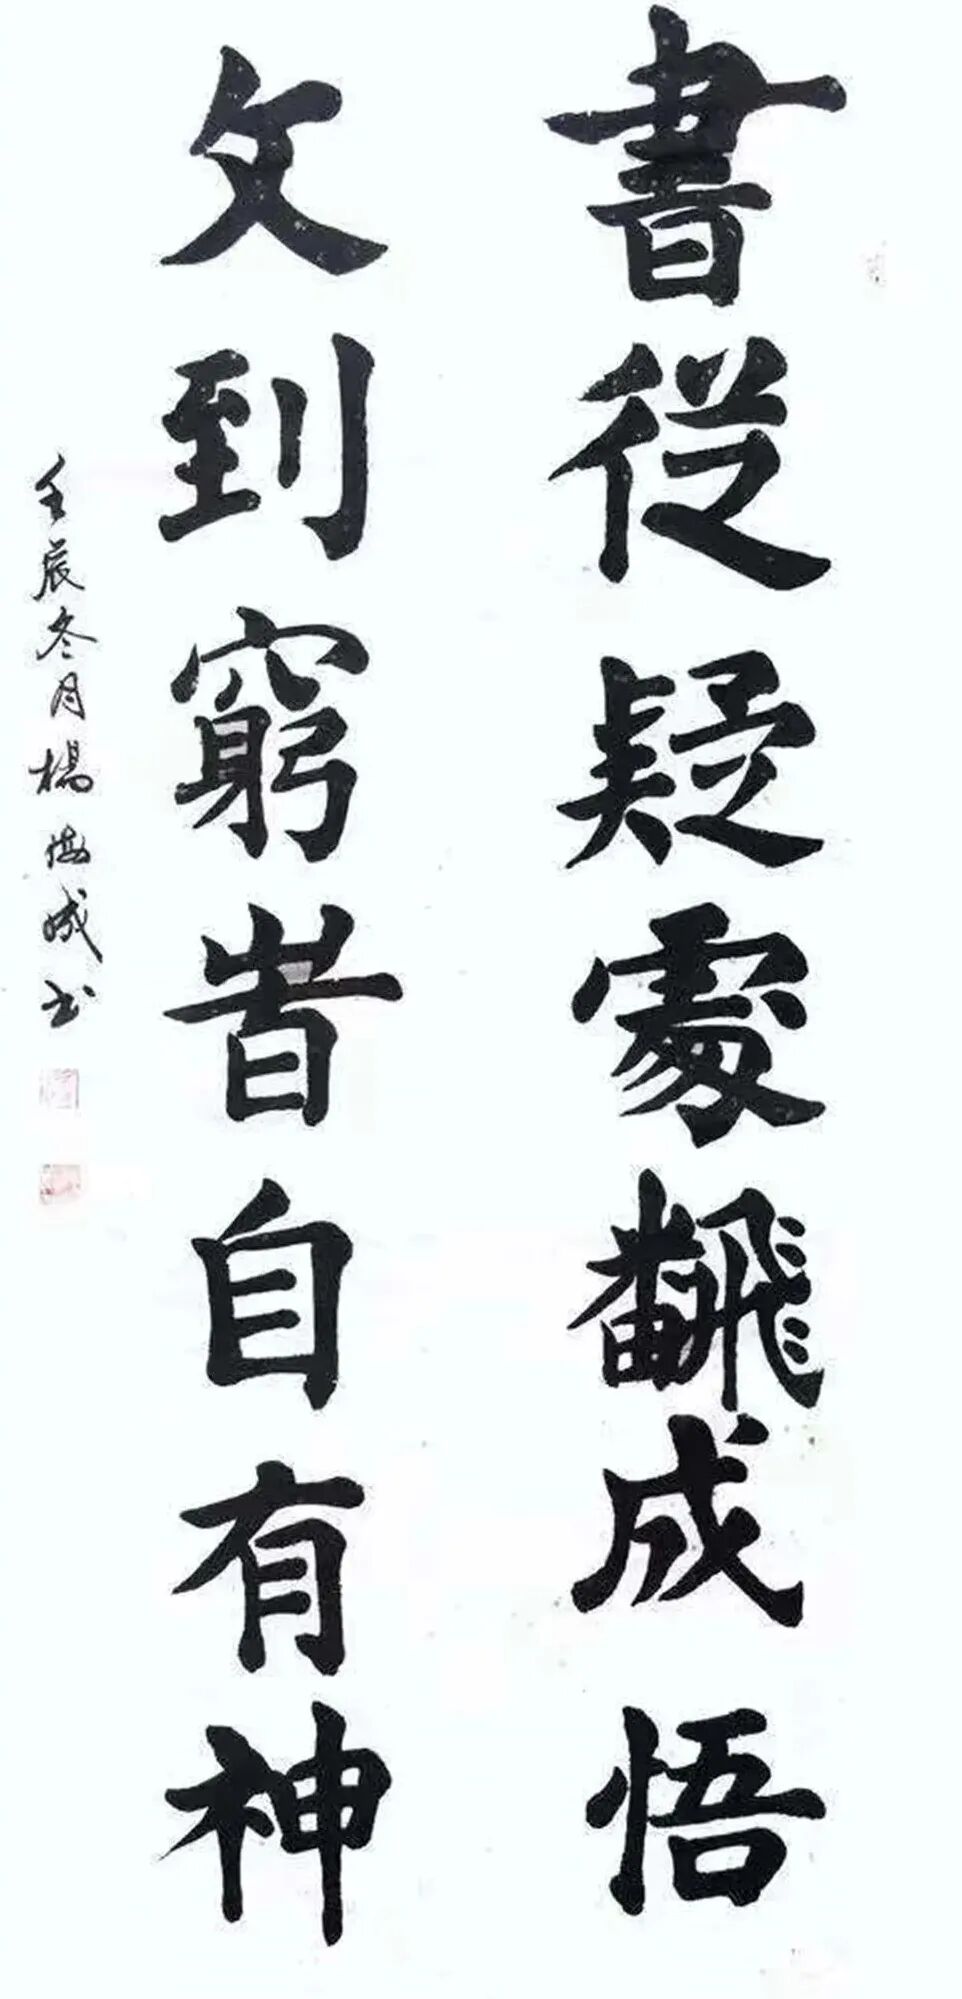 書從疑處飜成悟
文到窮旹自有神
壬辰冬月楊　成书